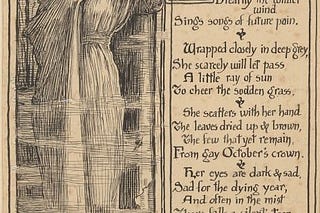 wind
Sings songs of future pain.
Wrapped closely in deep grey,
She scarcely will let pass
A little ray of sun
To cheer the sodden grass.
She scatters with her hand
The leaves dried up & brown,
The few that yet remain,
From gay October's crown.
Her eyes are dark & sad,
Sad for the dying year,
And often in the mist